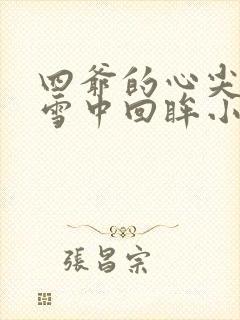 四爺的心尖
雪中回眸小
張昌宗